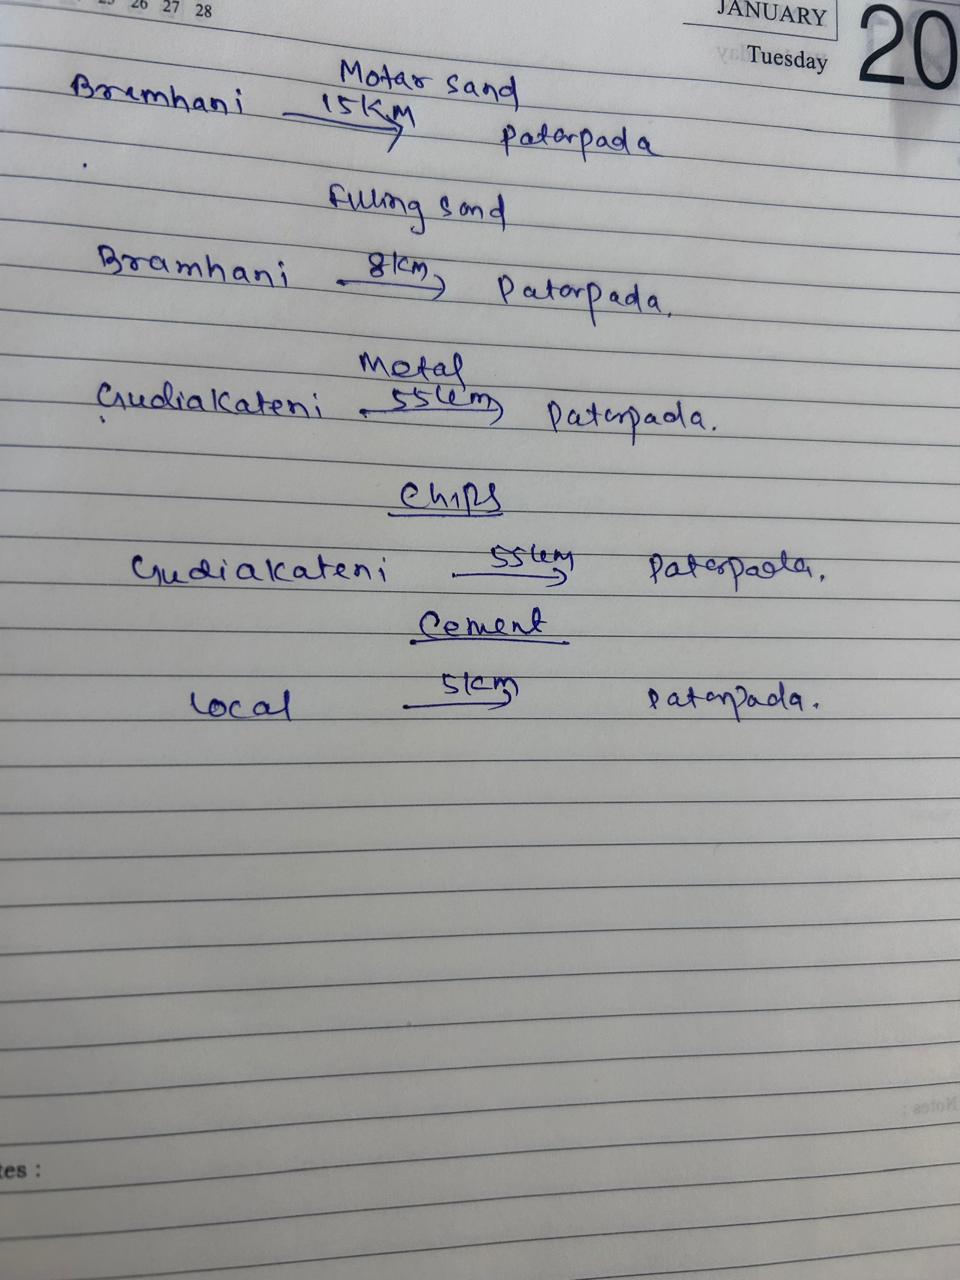 25 26 27 28
JANUARY
Tuesday
20
Motar sand
Bramhani 15KM Patarpada
Filling sand
Bramhani 8KM Patarpada.
Metal
Gudiakateni 55km Patarpada.
Chips
Gudiakateni 55km Patarpada.
Cement
Local 5km Patarpada.
Notes :
tes :